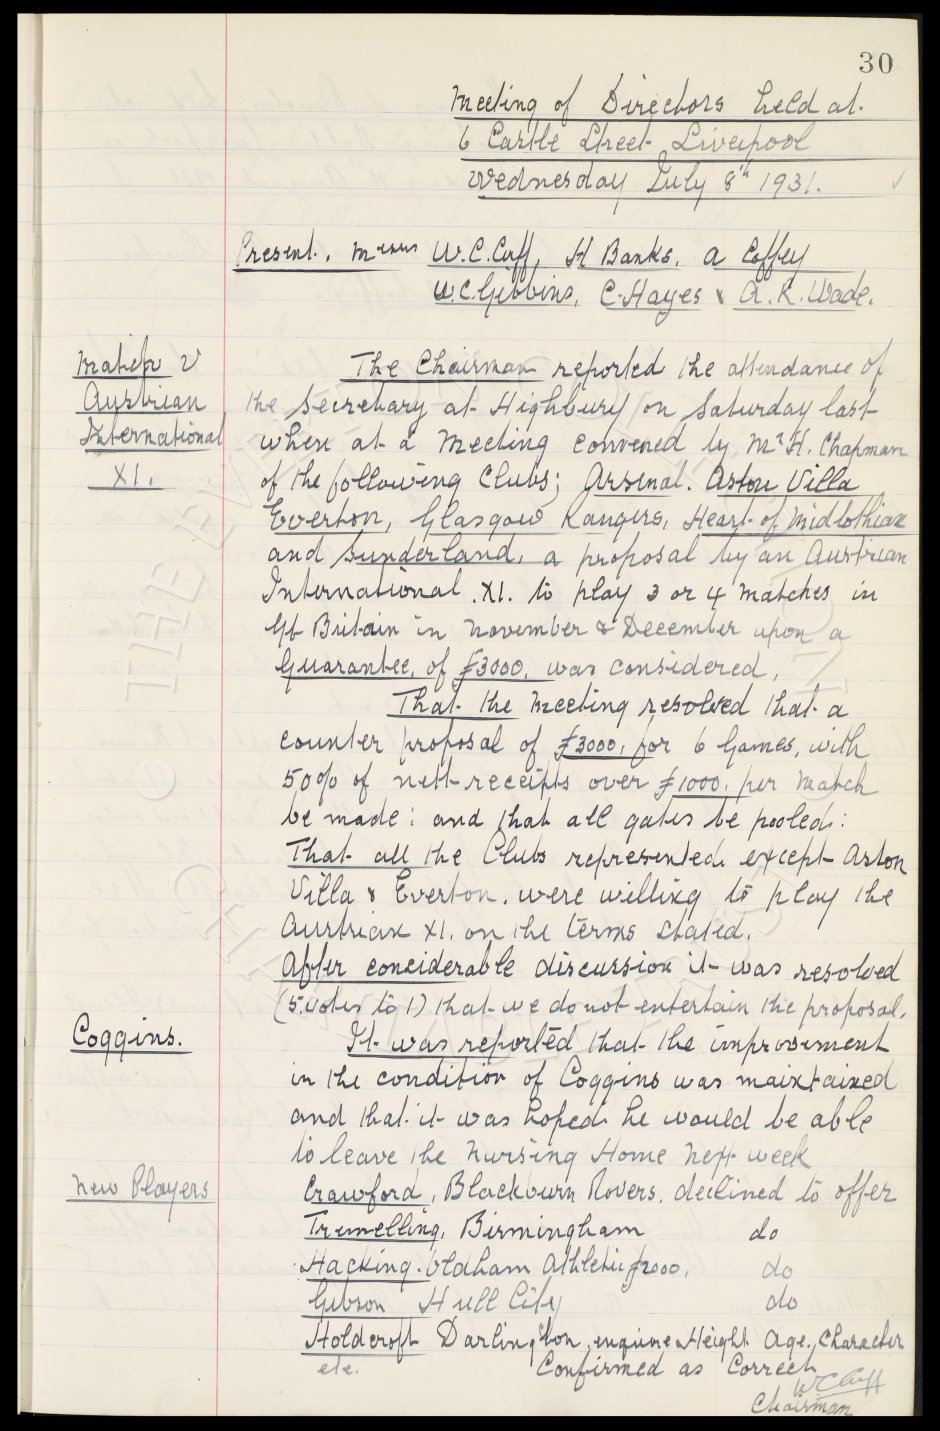 30
Meeting of Directors held at
6 Castle Street Liverpool
Wednesday July 8th 1931.
Present. Messrs W.C. Cuff, H Banks, A Coffey
W.C. Gibbins, C. Hayes & A.R. Wade.
Match v
Austrian
International
XI.
The Chairman reported the attendance of
the Secretary at Highbury on Saturday last
when at a Meeting convened by Mr H. Chapman
of the following Clubs; Arsenal. Aston Villa
Everton, Glasgow Rangers, Heart of Midlothian
and Sunderland, a proposal by an Austrian
International .XI. to play 3 or 4 matches in
Gt Britain in November & December upon a
Guarantee, of £3000, was considered,
That the Meeting resolved that a
counter proposal of £3000, for 6 Games, with
50% of nett receipts over £1000, per match
be made: and that all gates be pooled:
That all the Clubs represented except Aston
Villa & Everton, were willing to play the
Austrian XI. on the terms stated.
After considerable discussion it was resolved
(5 votes to 1) that we do not entertain the proposal.
Coggins.
It was reported that the improvement
in the condition of Coggins was maintained
and that it was hoped he would be able
to leave the Nursing Home next week
New Players
Crawford, Blackburn Rovers, declined to offer
Tremelling, Birmingham do
Hacking. Oldham Athletic £2000, do
Gibson Hull City do
Holdcroft Darlington, enquire Height Age, Character
etc. Confirmed as Correct
WC Cuff
Chairman